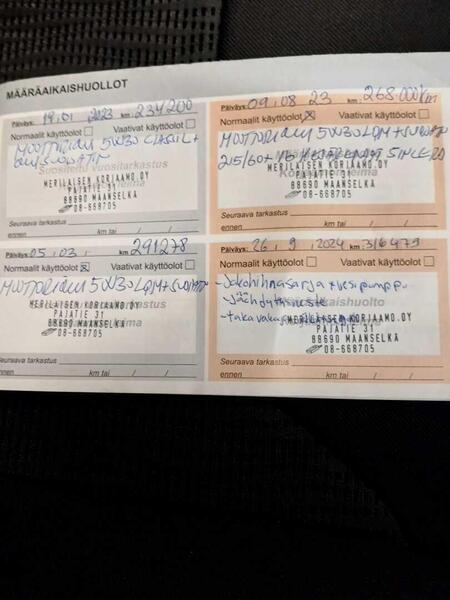 MÄÄRÄAIKAISHUOLLOT
Päiväys: 19.01 2023 km: 234200
Normaalit käyttöolot Vaativat käyttöolot
MOOTTORIÖLJY 5W30
Suositeltu vuositarkastus
MERILAISEN KORJAAMO.OY
PAJATIE 31
88690 MAANSELKA
08-668705
Seuraava tarkastus
ennen km tai / /
Päiväys: 09.08 23 km: 268.000km
Normaalit käyttöolot Vaativat käyttöolot
MOOTTORIÖLJY 5W30
215/60
MERILAISEN KORJAAMO.OY
PAJATIE 31
88690 MAANSELKA
08-668705
Seuraava tarkastus
ennen km tai / /
Päiväys: 05.03. km: 291278
Normaalit käyttöolot Vaativat käyttöolot
MOOTTORIÖLJY 5W30
MERILAISEN KORJAAMO.OY
PAJATIE 31
88690 MAANSELKA
08-668705
Seuraava tarkastus
ennen km tai / /
Päiväys: 26.9.2024 km: 316479
Normaalit käyttöolot Vaativat käyttöolot
- Jakohihnasarja + vesipumppu
- Jäähdytysneste
MERILAISEN KORJAAMO.OY
PAJATIE 31
88690 MAANSELKA
08-668705
Seuraava tarkastus
ennen km tai / /